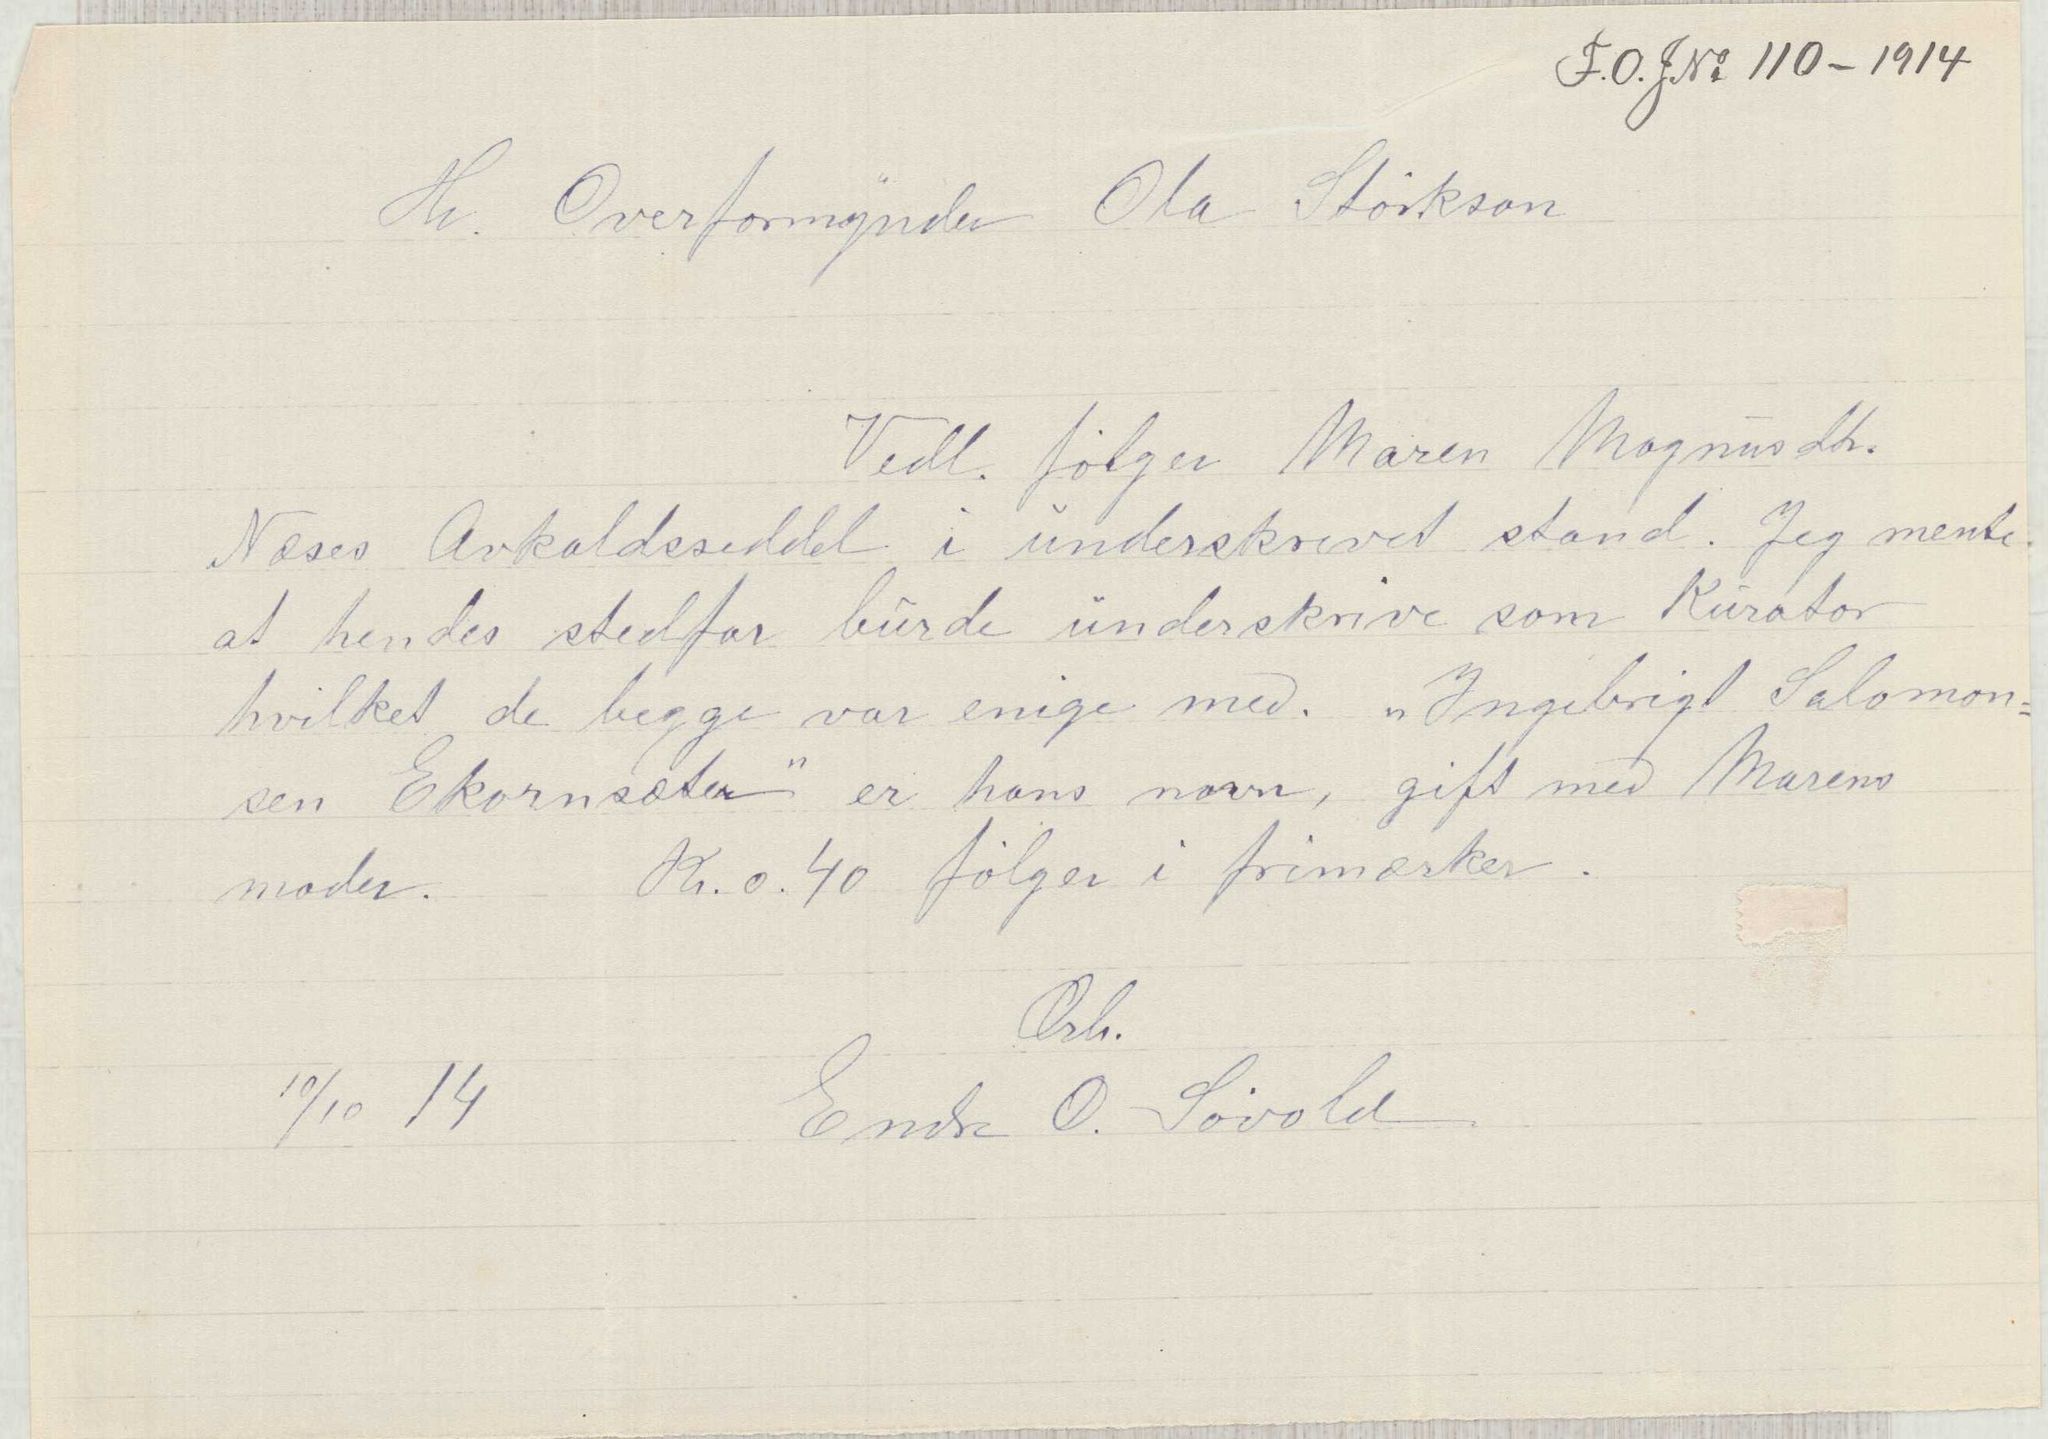 F.O.J.No 110 – 1914
Hr. Overformynder Ola Störkson
Vedl. følger Maren Magnusdtr.
Næses Avkaldsseddel i underskrevet stand. Jeg mente
at hendes stedfar burde underskrive som Kurator
hvilket de begge var enige med. „Ingebrigt Salomon=
sen Ekornsæter" er hans navn, gift med Marens
moder. Kr. 0.40 følger i frimærker.
Ærb.
10/10 14 Endre O. Søvold